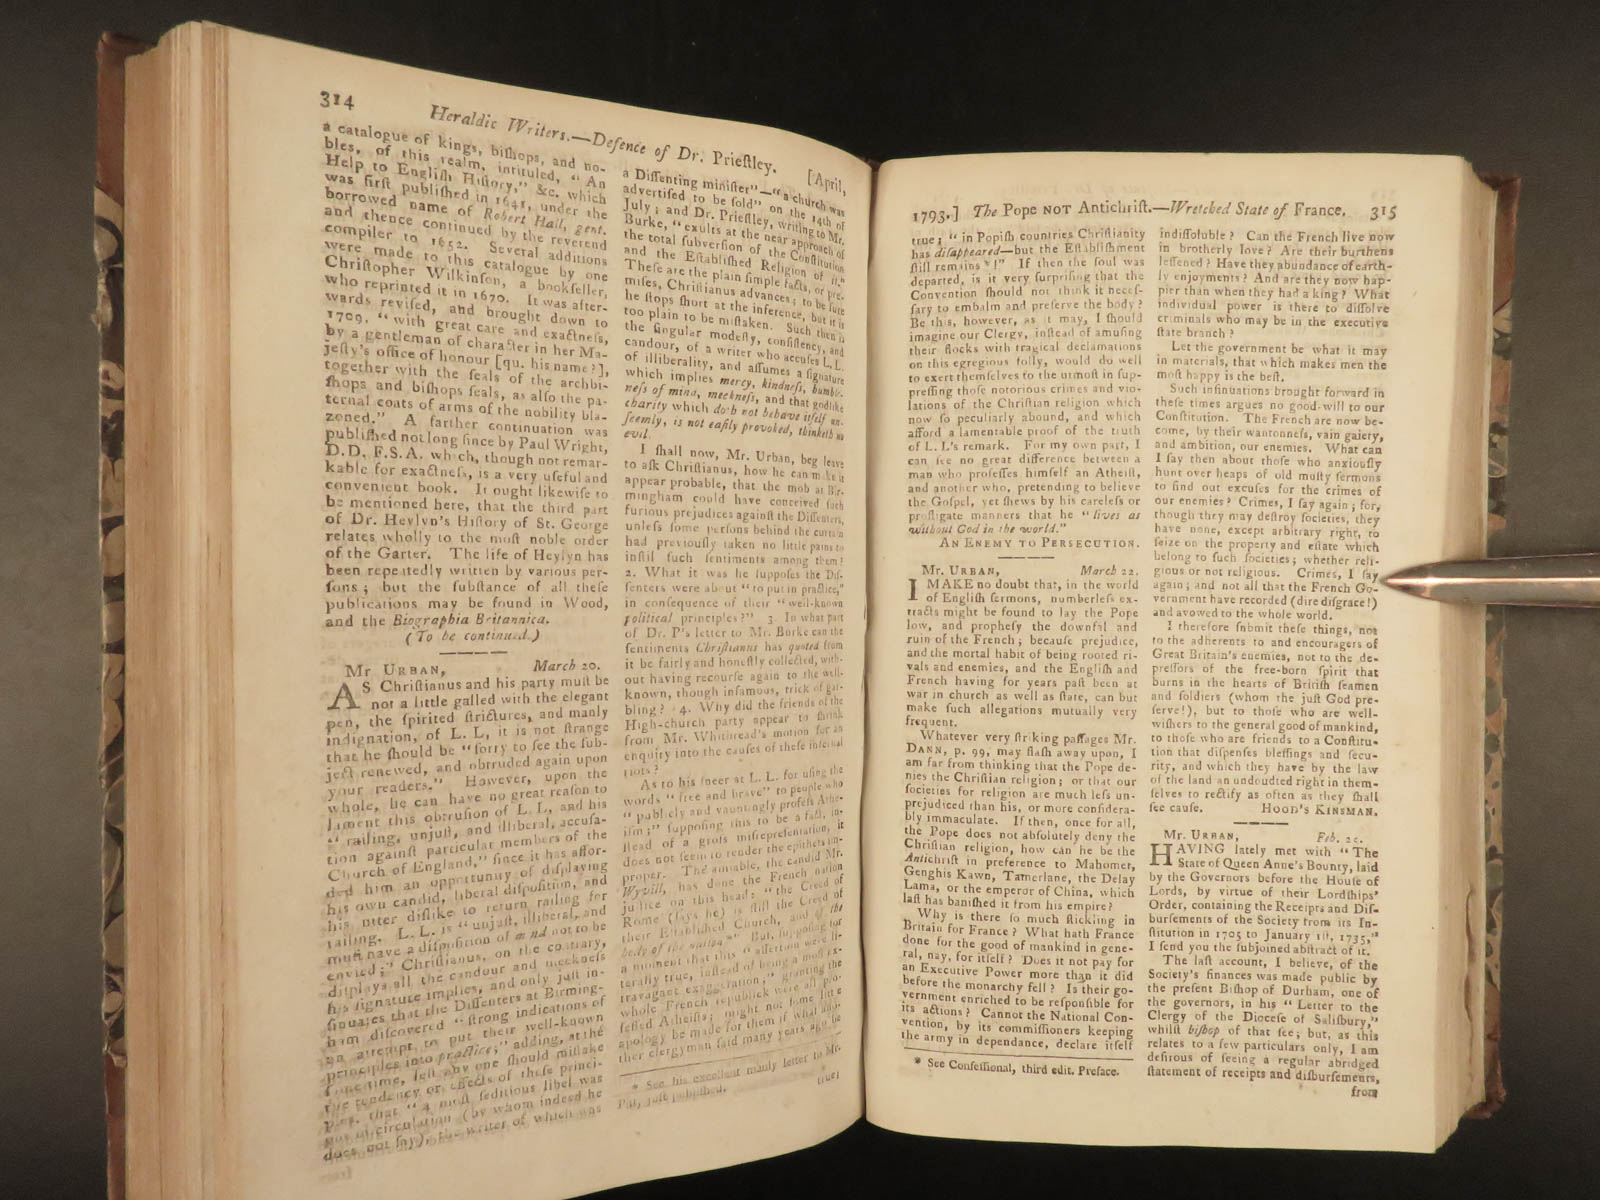 314
Heraldic Writers.—Defence of Dr. Prieſtley.
[April,
a catalogue of kings, biſhops, and no-
bles, of this realm, intituled, "An
Help to Engliſh Hiſtory," &c. which
was firſt publiſhed in 1641, under the
borrowed name of Robert Hall, gent.
and thence continued by the reverend
compiler to 1652. Several additions
were made to this catalogue by one
Chriſtopher Wilkinſon, a bookſeller,
who reprinted it in 1670. It was after-
wards reviſed, and brought down to
1709, "with great care and exactneſs,
by a gentleman of character in her Ma-
jeſty's office of honour [qu. his name?],
together with the ſeals of the archbi-
ſhops and biſhops ſeals, as alſo the pa-
ternal coats of arms of the nobility bla-
zoned." A farther continuation was
publiſhed not long ſince by Paul Wright,
D.D. F.S.A. which, though not remar-
kable for exactneſs, is a very uſeful and
convenient book. It ought likewiſe to
be mentioned here, that the third part
of Dr. Heylyn's Hiſtory of St. George
relates wholly to the moſt noble order
of the Garter. The life of Heylyn has
been repeatedly written by various per-
ſons; but the ſubſtance of all theſe
publications may be found in Wood,
and the Biographia Britannica.
(To be continued.)
Mr URBAN, March 20.
AS Chriſtianus and his party muſt be
not a little galled with the elegant
pen, the ſpirited ſtrictures, and manly
indignation, of L. L, it is not ſtrange
that he ſhould be "ſorry to ſee the ſub-
ject renewed, and obtruded again upon
your readers." However, upon the
whole, he can have no great reaſon to
lament this obtruſion of L. L, and his
"railing, unjuſt, and illiberal, accuſa-
tion againſt particular members of the
Church of England," ſince it has affor-
ded him an opportunity of diſplaying
his own candid, liberal diſpoſition, and
his utter diſlike to return railing for
railing. L. L. is "unjuſt, illiberal, and
muſt have a diſpoſition of mind not to be
envied;" Chriſtianus, on the contrary,
diſplays all the candour and meekneſs
his ſignature implies, and only juſt in-
ſinuates that the Diſſenters at Birming-
ham diſcovered "ſtrong indications of
an attempt to put their well-known
principles into practice;" adding, at the
ſame time, leſt any one ſhould miſtake
the tendency or effects of theſe princi-
ples, that "a moſt ſeditious libel was
put in circulation (by whom indeed he
does not ſay), the writer of which was
from
a Diſſenting miniſter"—"a church was
advertiſed to be ſold" on the 14th of
July; and Dr. Prieſtley, writing to Mr.
Burke, "exults at the near approach of
the total ſubverſion of the Conſtitution
and the Eſtabliſhed Religion of it."
Theſe are the plain ſimple facts, or pre-
miſes, Chriſtianus advances; to be ſure
he ſtops ſhort at the inference, but it is
too plain to be miſtaken. Such then is
the ſingular modeſty, conſiſtency, and
candour, of a writer who accuſes L. L.
of illiberality, and aſſumes a ſignature
which implies mercy, kindneſs, humble-
neſs of mind, meekneſs, and that godlike
charity which doth not behave itſelf un-
ſeemly, is not eaſily provoked, thinketh no
evil.
I ſhall now, Mr. Urban, beg leave
to aſk Chriſtianus, how he can make it
appear probable, that the mob at Bir-
mingham could have conceived ſuch
furious prejudices againſt the Diſſenters,
unleſs ſome perſons behind the curtain
had previouſly taken no little pains to
inſtil ſuch ſentiments among them?
2. What it was he ſuppoſes the Diſ-
ſenters were about "to put in practice,"
in conſequence of their "well-known
political principles?" 3. In what part
of Dr. P's letter to Mr. Burke can the
ſentiments Chriſtianus has quoted from
it be fairly and honeſtly collected, with-
out having recourſe again to the well-
known, though infamous, trick of gar-
bling? 4. Why did the friends of the
High-church party appear to ſhrink
from Mr. Whitbread's motion for an
enquiry into the cauſes of theſe infernal
riots?
As to his ſneer at L. L. for uſing the
words "free and brave" to people who
"publicly and vauntingly profeſs Athe-
iſm;" ſuppoſing this to be a fact, in-
ſtead of a groſs miſrepreſentation, it
does not ſeem to render the epithets im-
proper. The amiable, the candid Mr.
Wyvill, has done the French nation
juſtice on this head: "the Creed of
Rome (ſays he) is ſtill the Creed of
their Eſtabliſhed Church, and of the
body of the nation*" But, ſuppoſing for
a moment that this "aſſertion were li-
terally true, inſtead of being a moſt ex-
travagant exaggeration," granting the
whole French republick were all pro-
feſſed Atheiſts; might not ſome little
apology be made for them if what ano-
ther clergyman ſaid many years ago be
* See his excellent manly letter to Mr.
Pitt, juſt publiſhed.
true;
1793.] The Pope NOT Antichriſt.—Wretched State of France. 315
true; "in Popiſh countries Chriſtianity
has diſappeared—but the Eſtabliſhment
ſtill remains*!" If then the ſoul was
departed, is it very ſurpriſing that the
Convention ſhould not think it neceſ-
ſary to embalm and preſerve the body?
Be this, however, as it may, I ſhould
imagine our Clergy, inſtead of amuſing
their flocks with tragical declamations
on this egregious folly, would do well
to exert themſelves to the utmoſt in ſup-
preſſing thoſe notorious crimes and vio-
lations of the Chriſtian religion which
now ſo peculiarly abound, and which
afford a lamentable proof of the truth
of L. L's remark. For my own part, I
can ſee no great difference between a
man who profeſſes himſelf an Atheiſt,
and another who, pretending to believe
the Goſpel, yet ſhews by his careleſs or
profligate manners that he "lives as
without God in the world."
AN ENEMY TO PERSECUTION.
Mr. URBAN, March 22.
I MAKE no doubt that, in the world
of Engliſh ſermons, numberleſs ex-
tracts might be found to lay the Pope
low, and propheſy the downfal and
ruin of the French; becauſe prejudice,
and the mortal habit of being rooted ri-
vals and enemies, and the Engliſh and
French having for years paſt been at
war in church as well as ſtate, can but
make ſuch allegations mutually very
frequent.
Whatever very ſtriking paſſages Mr.
DANN, p. 99, may flaſh away upon, I
am far from thinking that the Pope de-
nies the Chriſtian religion; or that our
ſocieties for religion are much leſs un-
prejudiced than his, or more conſidera-
bly immaculate. If then, once for all,
the Pope does not abſolutely deny the
Chriſtian religion, how can he be the
Antichriſt in preference to Mahomet,
Genghis Kawn, Tamerlane, the Delay
Lama, or the emperor of China, which
laſt has baniſhed it from his empire?
Why is there ſo much ſtickling in
Britain for France? What hath France
done for the good of mankind in gene-
ral, nay, for itſelf? Does it not pay for
an Executive Power more than it did
before the monarchy fell? Is their go-
vernment enriched to be reſponſible for
its actions? Cannot the National Con-
vention, by its commiſſioners keeping
the army in dependance, declare itſelf
* See Confeſſional, third edit. Preface.
indiſſoluble? Can the French live now
in brotherly love? Are their burthens
leſſened? Have they abundance of earth-
ly enjoyments? And are they now hap-
pier than when they had a king? What
individual power is there to diſſolve
criminals who may be in the executive
ſtate branch?
Let the government be what it may
in materials, that which makes men the
moſt happy is the beſt.
Such inſinuations brought forward in
theſe times argues no good-will to our
Conſtitution. The French are now be-
come, by their wantonneſs, vain gaiety,
and ambition, our enemies. What can
I ſay then about thoſe who anxiouſly
hunt over heaps of old muſty ſermons
to find out excuſes for the crimes of
our enemies? Crimes, I ſay again; for,
though they may deſtroy ſocieties, they
have none, except arbitrary right, to
ſeize on the property and eſtate which
belong to ſuch ſocieties; whether reli-
gious or not religious. Crimes, I ſay
again; and not all that the French Go-
vernment have recorded (dire diſgrace!)
and avowed to the whole world.
I therefore ſubmit theſe things, not
to the adherents to and encouragers of
Great Britain's enemies, not to the de-
preſſors of the free-born ſpirit that
burns in the hearts of Britiſh ſeamen
and ſoldiers (whom the juſt God pre-
ſerve!), but to thoſe who are well-
wiſhers to the general good of mankind,
to thoſe who are friends to a Conſtitu-
tion that diſpenſes bleſſings and ſecu-
rity, and which they have by the law
of the land an undoudted right in them-
ſelves to rectify as often as they ſhall
ſee cauſe. HOOD'S KINSMAN.
Mr. URBAN, Feb. 20.
HAVING lately met with "The
State of Queen Anne's Bounty, laid
by the Governors before the Houſe of
Lords, by virtue of their Lordſhips'
Order, containing the Receipts and Diſ-
burſements of the Society from its In-
ſtitution in 1705 to January 1ſt, 1735,"
I ſend you the ſubjoined abſtract of it.
The laſt account, I believe, of the
Society's finances was made public by
the preſent Biſhop of Durham, one of
the governors, in his "Letter to the
Clergy of the Dioceſe of Saliſbury,"
whilſt biſhop of that ſee; but, as this
relates to a few particulars only, I am
deſirous of ſeeing a regular abridged
ſtatement of receipts and diſburſements,
from